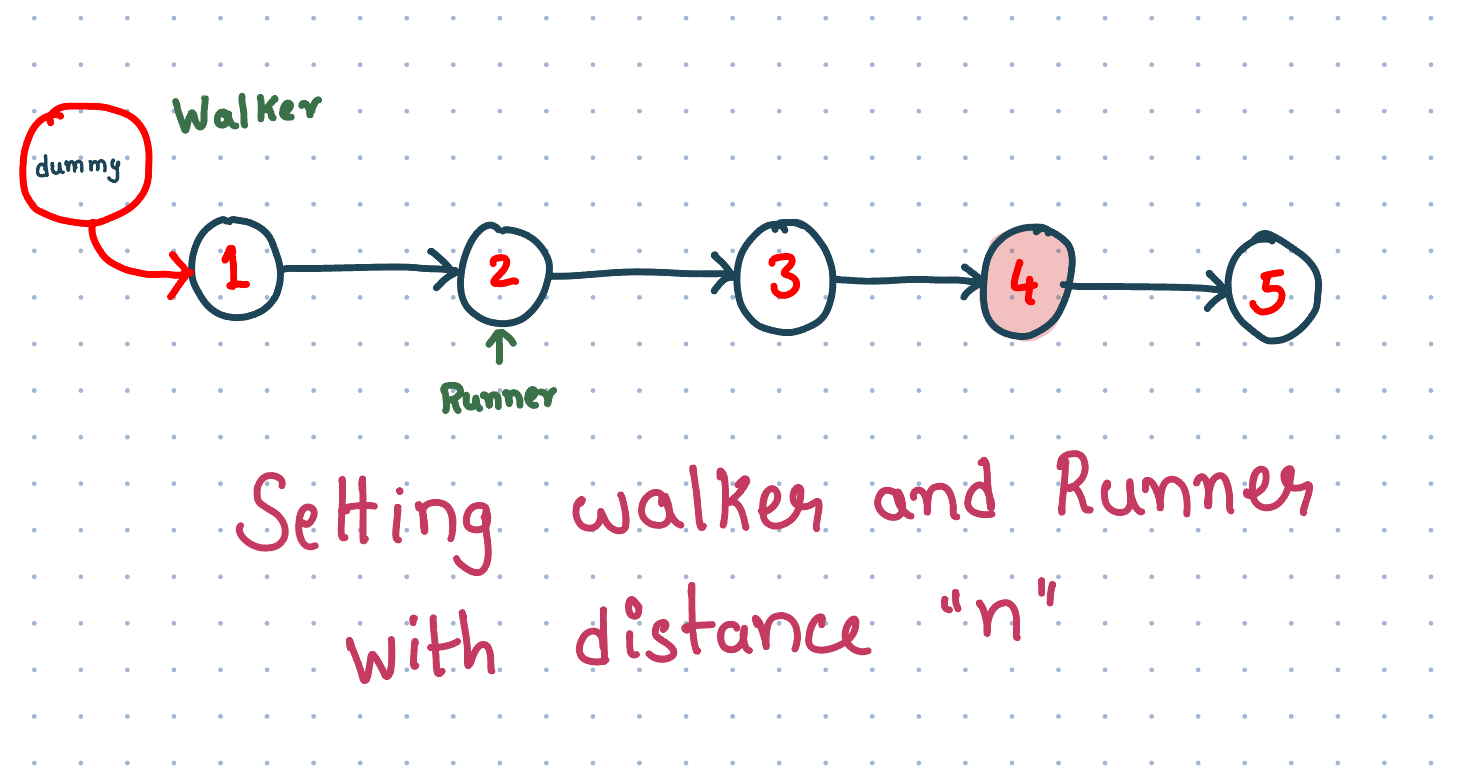 Walker
dummy
1 2 3 4 5
Runner
Setting walker and Runner
with distance "n"